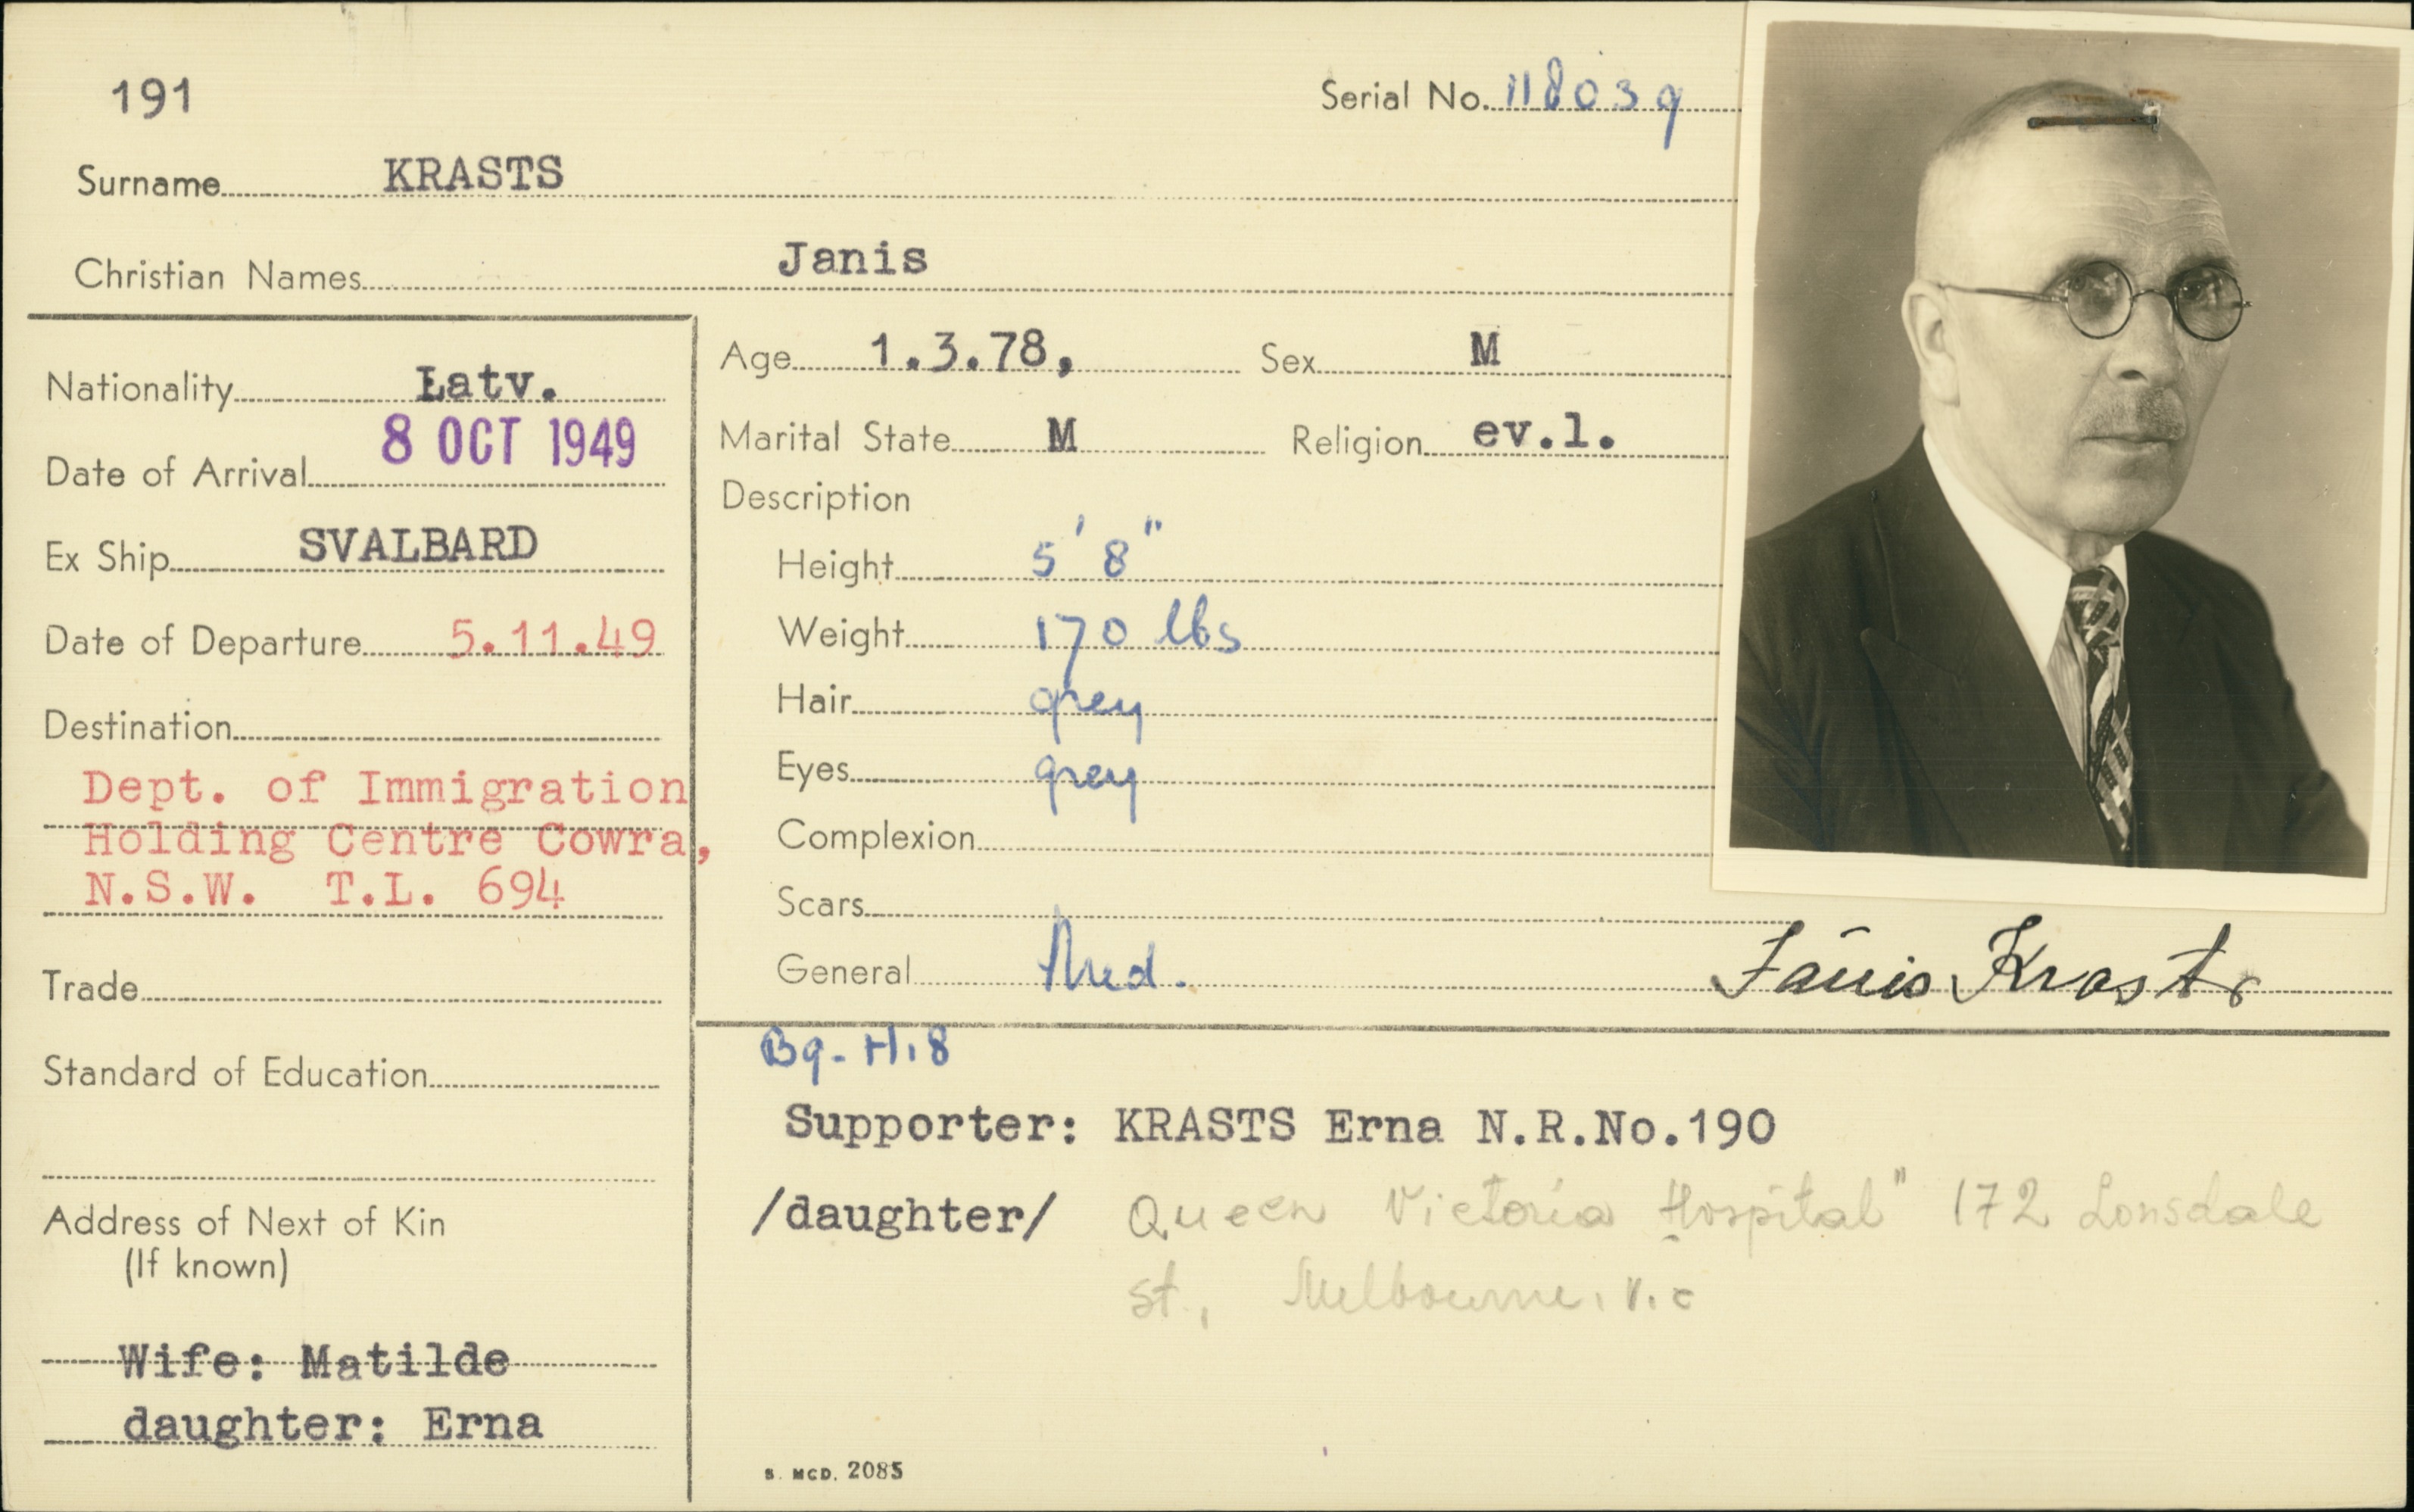 191
Serial No. 118039
Surname KRASTS
Christian Names Janis
Nationality Latv.
Date of Arrival 8 OCT 1949
Ex Ship SVALBARD
Date of Departure 5.11.49
Destination
Dept. of Immigration
Holding Centre Cowra,
N.S.W. T.L. 694
Trade
Standard of Education
Address of Next of Kin
(If known)
Wife: Matilde
daughter: Erna
Age 1.3.78, Sex M
Marital State M Religion ev.l.
Description
Height 5' 8"
Weight 170 lbs
Hair grey
Eyes grey
Complexion
Scars
General Med.
Jānis Krasts
B9-H.8
Supporter: KRASTS Erna N.R.No.190
/daughter/ Queen Victoria Hospital" 172 Lonsdale
St., Melbourne. Vic
S. MCD. 2085